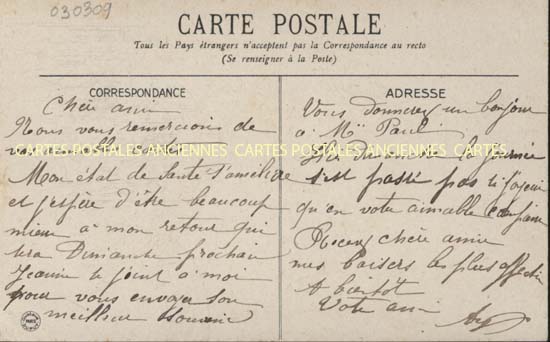 030309
CARTE POSTALE
Tous les Pays étrangers n'acceptent pas la Correspondance au recto
(Se renseigner à la Poste)
CORRESPONDANCE
Chère amie
Nous vous remercions de
vos
Mon état de Santé s'améliore
et j'espère d'être beaucoup
mieux à mon retour qui
sera Dimanche prochain
Jeanne se joint à moi
pour vous envoyer son
meilleur souvenir
ADRESSE
Vous donnerez un bonjour
à Mr Paul
la journée
s'est passé pas si
qu'en votre aimable compagnie
Recevez chère amie
mes baisers les plus affectueux
A bientôt
Votre ami
CARTES POSTALES ANCIENNES CARTES POSTALES ANCIENNES CARTES